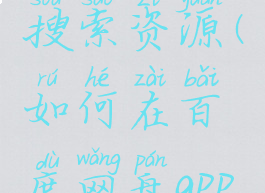 sōu suǒ zī yuán
搜索资源(
rú hé zài bǎi
如何在百
dù wǎng pán
度网盘app